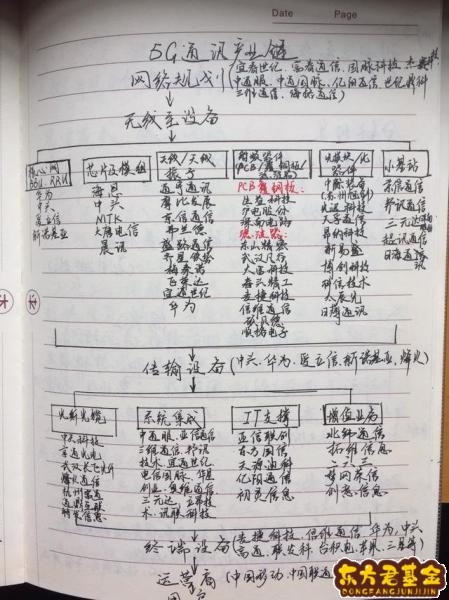 Date Page
5G通讯产业链
网络规划(宜春世纪、富春通信、国脉科技、杰赛科技
中通服、中通国脉、亿阳通信、世纪鼎利
三维通信、海格通信)
无线主设备
核心网
BBU、RRU
华为
中兴
爱立信
新诺基亚
芯片及模组
海思
中兴
MTK
大唐电信
展讯
天线/天线
振子
通宇通讯
摩比发展
东信通信
弗兰德
盛路通信
齐星铁塔
梅泰诺
飞荣达
宜通世纪
华为
射频器件
PCB覆铜板:
生益科技
沪电股份
深南电路
滤波器:
东山精密
武汉凡谷
大富科技
春兴精工
麦捷科技
信维通信
顺络电子
光模块/光
器件
中际装备
(苏州旭创)
光迅科技
天孚通信
昂纳科技
新易盛
博创科技
科信技术
太辰光
日海通讯
小基站
京信通信
邦讯通信
三元达
超讯通信
日海通讯
传输设备(中兴、华为、爱立信、新诺基亚、烽火)
光纤光缆
中天科技
亨通光电
武汉长飞光纤
烽火通信
杭州富通
通鼎互联
特发信息
系统集成
中通服、亚信通信
三维通信、邦讯
技术、宜通世纪
电信国脉、华星
创业、奥维通信
三元达、立昂技
术、讯联科技
IT支撑
亚信联创
东方国信
天源迪科
亿阳通信
初灵信息
增值业务
北纬通信
拓维信息
二六三
梦网荣信
创意信息
终端设备(麦捷科技、信维通信、华为、中兴
高通、联发科、台积电、苹果、三星等)
运营商(中国移动、中国联通
东方君基金
DONGFANGJUNJIJIN